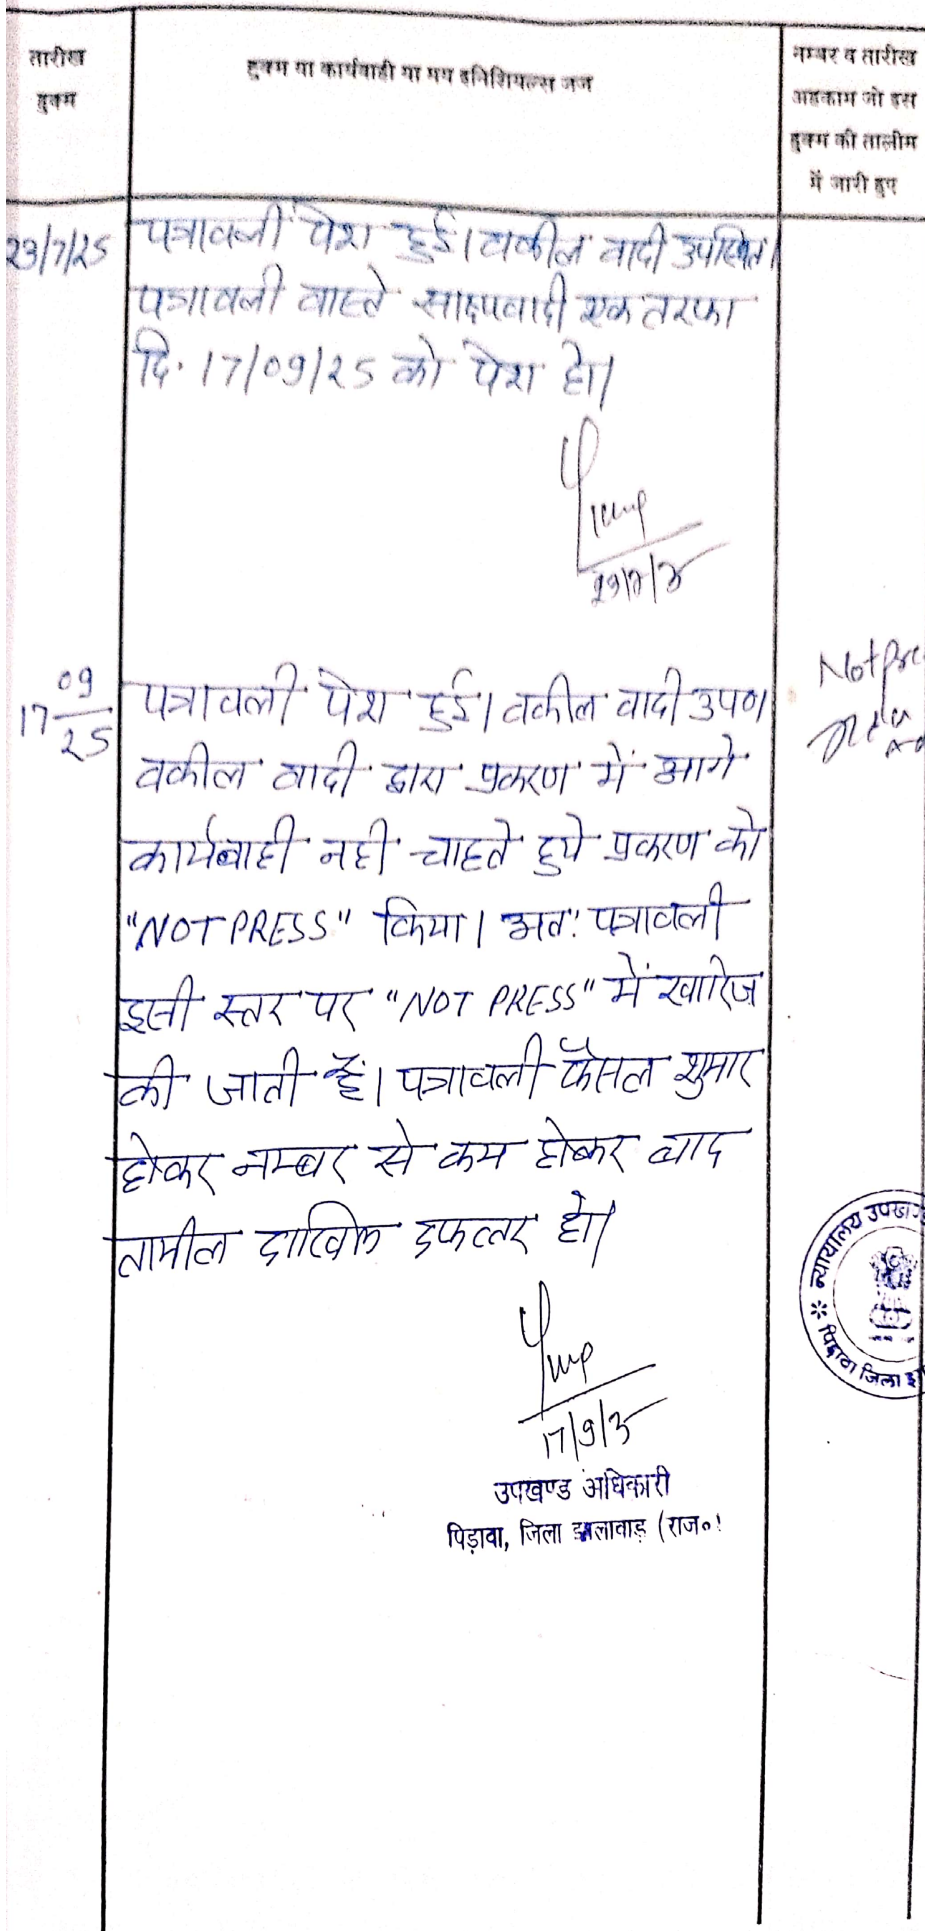 तारीख
हुक्म
हुक्म या कार्यवाही या मय इनिशियल्स जज
नम्बर व तारीख
अहकाम जो इस
हुक्म की तालीम
में जारी हुए
23/7/25
पत्रावली पेश हुई। वकील वादी उपस्थित।
पत्रावली वास्ते साक्ष्यवादी एक तरफा
दि. 17/09/25 को पेश हो।
17 09/25
पत्रावली पेश हुई। वकील वादी उप०।
वकील वादी द्वारा प्रकरण में आगे
कार्यवाही नही चाहते हुये प्रकरण को
"NOT PRESS" किया। अतः पत्रावली
इसी स्तर पर "NOT PRESS" में खारिज
की जाती हैं। पत्रावली फैसल शुमार
होकर नम्बर से कम होकर बाद
तामील दाखिल दफ्तर हो।
Not Pre
17/9/25
उपखण्ड अधिकारी
पिड़ावा, जिला झालावाड़ (राज०)
न्यायालय उपखण्ड
पिड़ावा जिला झा